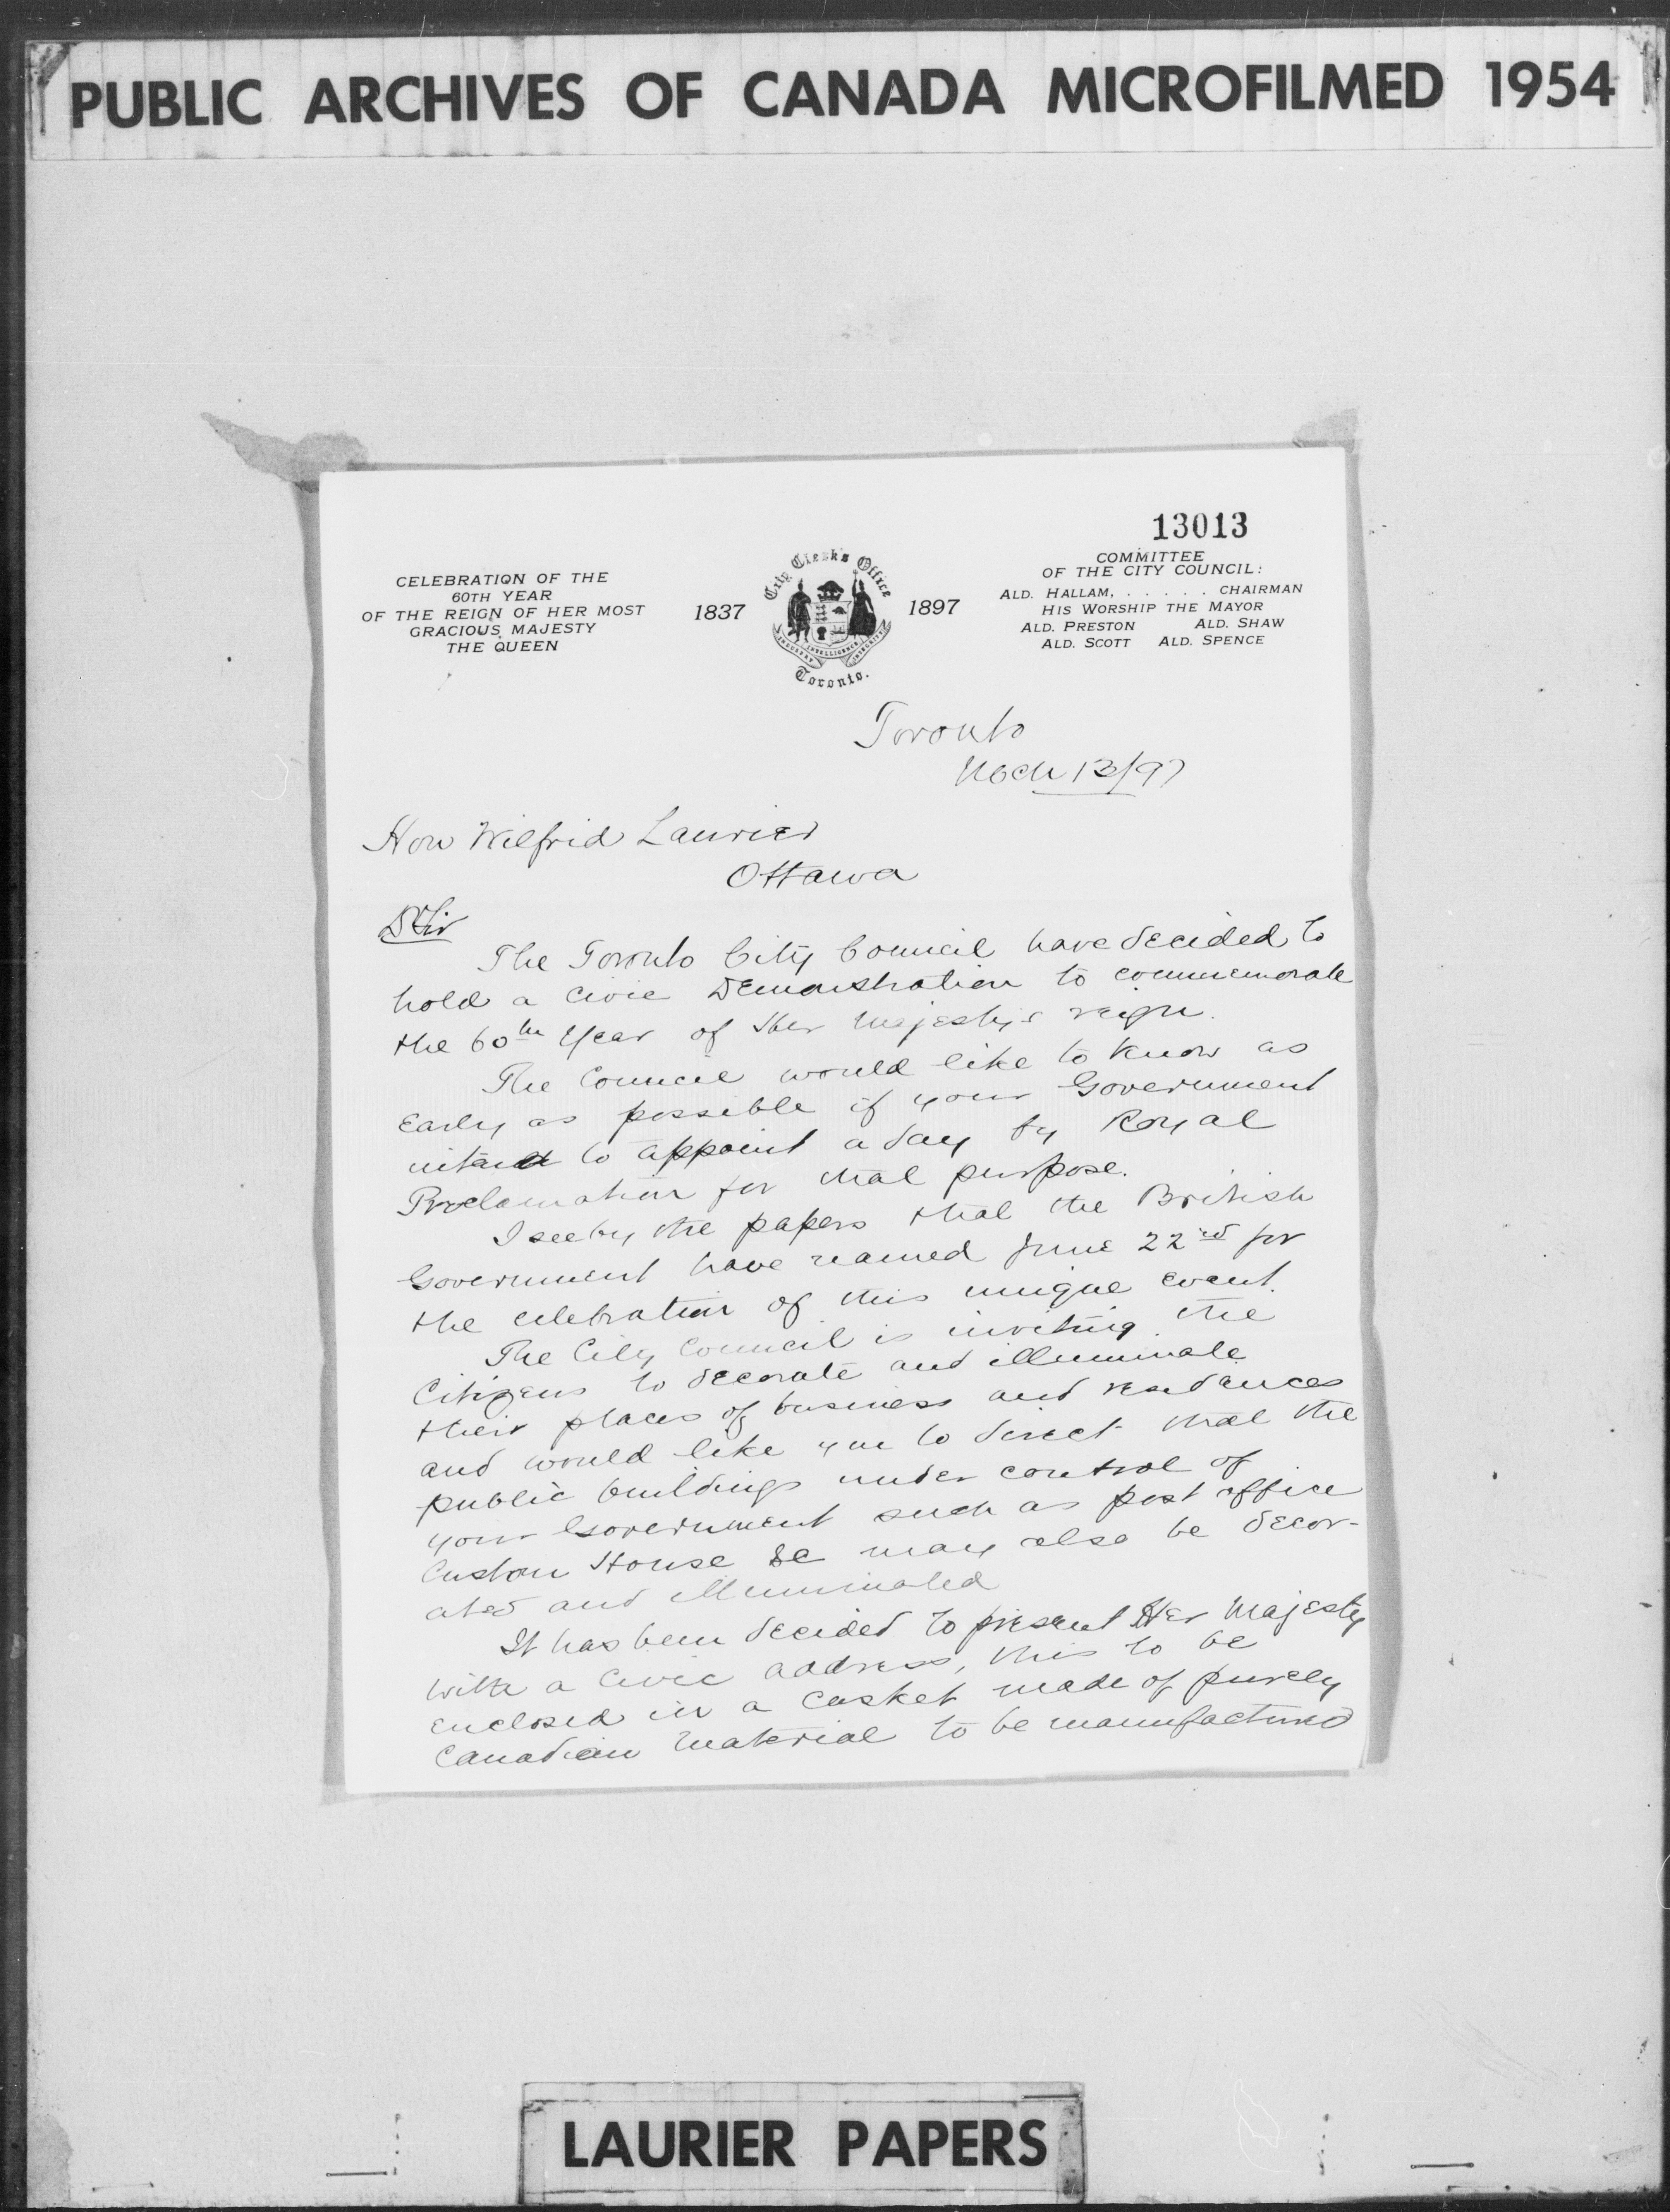 PUBLIC ARCHIVES OF CANADA MICROFILMED 1954
13013
CELEBRATION OF THE
60TH YEAR
OF THE REIGN OF HER MOST
GRACIOUS MAJESTY
THE QUEEN
1837
City Clerk's Office
INDUSTRY INTELLIGENCE INTEGRITY
Toronto.
1897
COMMITTEE
OF THE CITY COUNCIL:
ALD. HALLAM, . . . . . CHAIRMAN
HIS WORSHIP THE MAYOR
ALD. PRESTON ALD. SHAW
ALD. SCOTT ALD. SPENCE
Toronto
Mch 13/97
Hon Wilfrid Laurier
Ottawa
D Sir
The Toronto City Council have decided to
hold a civic Demonstration to commemorate
the 60th Year of Her Majesty's reign.
The Council would like to know as
Early as possible if your Government
intend to appoint a day by Royal
Proclamation for that purpose.
I see by the papers that the British
Government have named June 22nd for
the celebration of this unique event.
The City Council is inviting the
Citizens to decorate and illuminate
their places of business and residances
and would like you to direct that the
public buildings under control of
your Government such as post office
Custom House &c may also be decor-
ated and illuminated
It has been decided to present Her Majesty
with a Civic address, this to be
enclosed in a Casket made of purely
Canadian material to be manufactured
LAURIER PAPERS